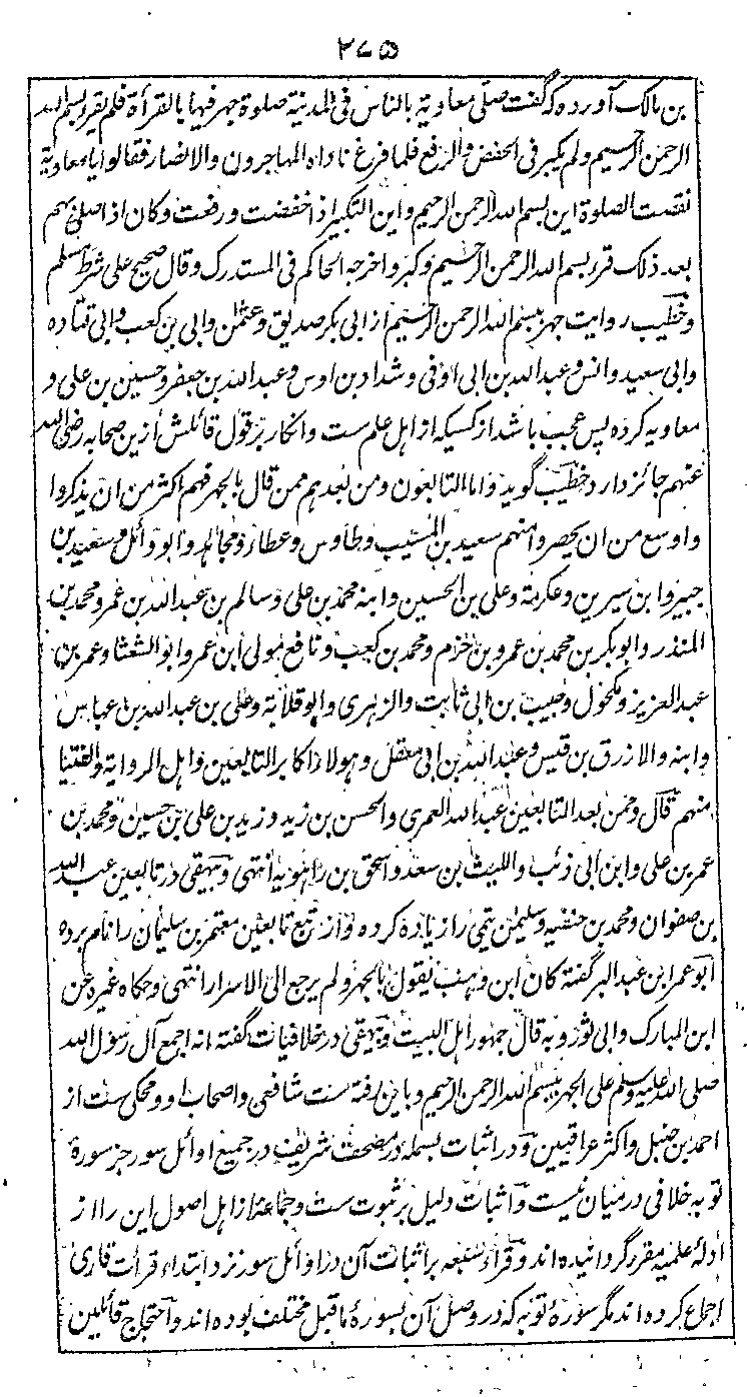 ۲۷۵
بن مالک آورده که گفت صلی معاویة بالناس فی المدینة صلوة جهر فیها بالقرأة فلم یقرء بسم الله
الرحمن الرحیم ولم یکبر فی الخفض والرفع فلما فرغ ناداه المهاجرون والانصار فقالوا یا معاویة
نقصت الصلوة این بسم الله الرحمن الرحیم واین التکبیر اذا خفضت ورفعت وکان اذا صلی بهم
بعد ذلک قرء بسم الله الرحمن الرحیم وکبر واخرجه الحاکم فی المستدرک وقال صحیح علی شرط مسلم
وخطیب روایت جهر ببسم الله الرحمن الرحیم از ابی بکر صدیق وعثمن وابی بن کعب وابی قتاده
وابی سعید وانس وعبد الله بن ابی اوفی وشداد بن اوس وعبد الله بن جعفر وحسین بن علی و
معاویه کرده پس عجب باشد از کسیکه از اهل علم ست وانکار بر قول قائلش ازین صحابه رضی الله
عنهم جائز دارد خطیب گوید واما التابعون ومن بعدهم ممن قال بالجهر فهم اکثر من ان یذکروا
واوسع من ان یحصروا منهم سعید بن المسیب وطاوس وعطاء ومجاهد وابو وائل وسعید بن
جبیر وابن سیرین وعکرمة وعلی بن الحسین وابنه محمد بن علی وسالم بن عبد الله بن عمر ومحمد بن
المنذر وابو بکر بن محمد بن عمرو بن حزم ومحمد بن کعب ونافع مولی ابن عمر وابو الشعثا وعمر بن
عبد العزیز ومکحول وحبیب بن ابی ثابت والزهری وابو قلابة وعلی بن عبد الله بن عباس
وابنه والازرق بن قیس وعبد الله بن ابی معقل وهولاء اکابر التابعین واهل الروایة والفتیا
منهم قال وممن بعد التابعین عبد الله العمری والحسن بن زید وزید بن علی بن حسین ومحمد بن
عمر بن علی وابن ابی ذئب واللیث بن سعد واسحق بن راهویه انتهی وبیهقی در تابعین عبد الله
بن صفوان ومحمد بن حنفیه وسلیمن تیمی را زیاده کرده واز تبع تابعین معتمر بن سلیمان را نام برده
ابو عمر ابن عبد البر گفته کان ابن وهب یقول بالجهر ولم یرجع الی الاسرار انتهی وحکاه غیره عن
ابن المبارک وابی ثور وبه قال جمهور اهل البیت وبیهقی در خلافیات گفته انه اجمع آل رسول الله
صلی الله علیه وسلم علی الجهر ببسم الله الرحمن الرحیم وباین رفته ست شافعی واصحاب او ومحکی ست از
احمد بن حنبل واکثر عراقیین ودر اثبات بسمله در مصحف شریف در جمیع اوائل سور جز سورهٔ
توبه خلافی درمیان نیست واثبات دلیل بر ثبوت ست وجماعتے از اهل اصول این را از
ادلهٔ علمیه مقرر گردانیده اند وقراء سبعه بر اثبات آن در اوائل سور نزد ابتداء قرأت قاری
اجماع کرده اند مگر سورهٔ توبه که در وصل آن بسورهٔ ماقبل مختلف بوده اند واحتجاج قائلین